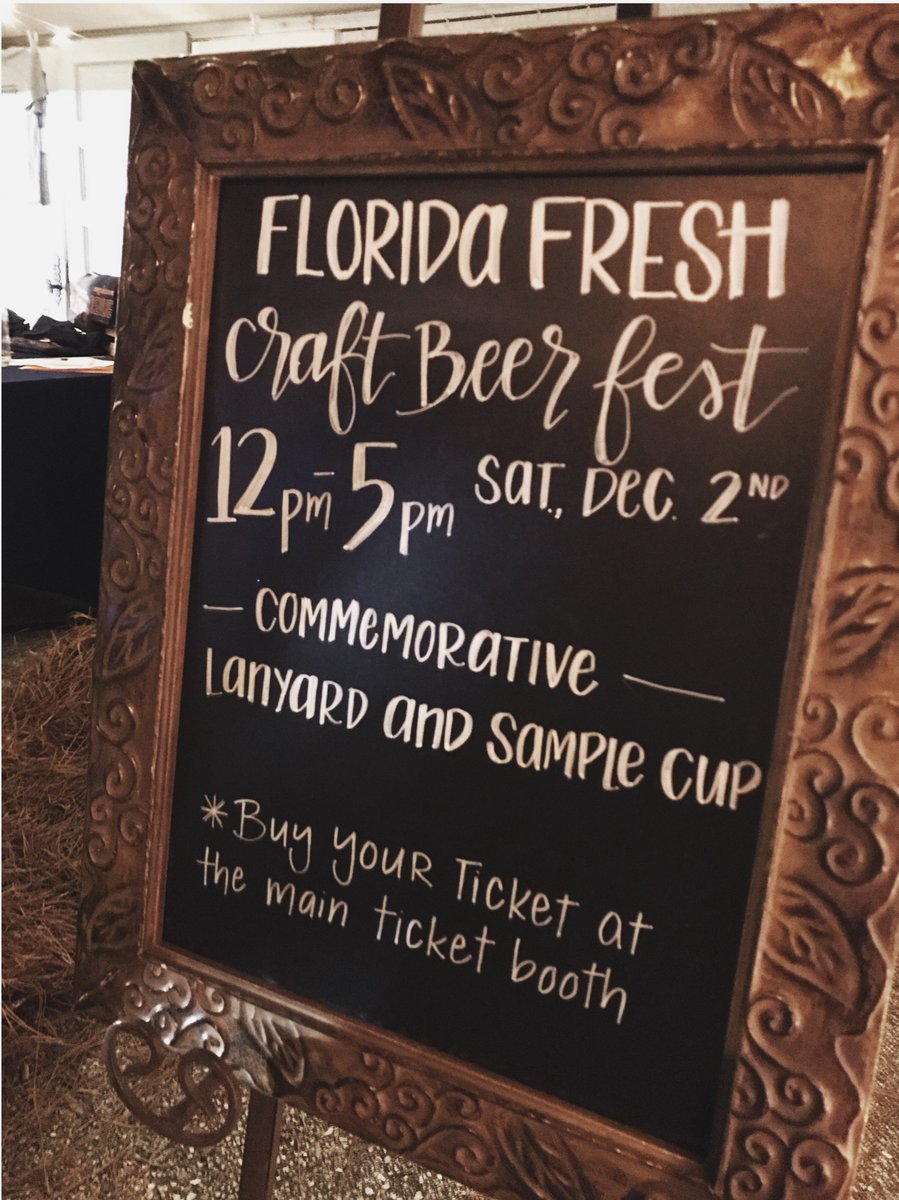 FLORIDA FRESH
Craft Beer fest
12pm-5pm Sat., Dec. 2ND
— COMMEMORATIVE —
LANYARD and SAMPLE CUP
*Buy your Ticket at
the main ticket booth